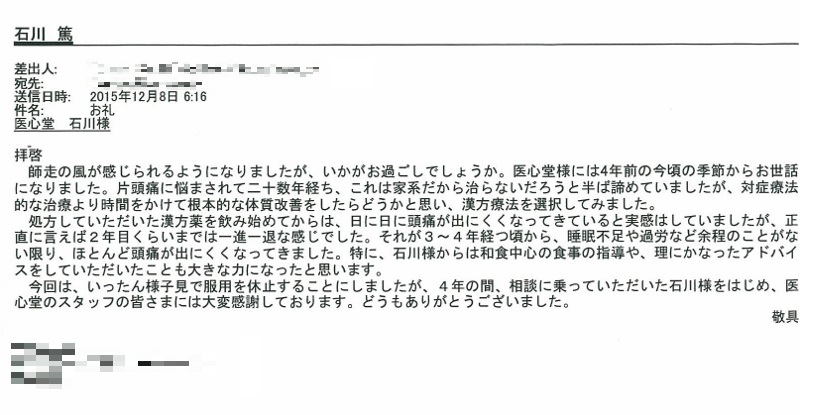 石川 篤
差出人:
宛先:
送信日時: 2015年12月8日 6:16
件名: お礼
医心堂 石川様
拝啓
師走の風が感じられるようになりましたが、いかがお過ごしでしょうか。医心堂様には4年前の今頃の季節からお世話
になりました。片頭痛に悩まされて二十数年経ち、これは家系だから治らないだろうと半ば諦めていましたが、対症療法
的な治療より時間をかけて根本的な体質改善をしたらどうかと思い、漢方療法を選択してみました。
処方していただいた漢方薬を飲み始めてからは、日に日に頭痛が出にくくなってきていると実感はしていましたが、正
直に言えば２年目くらいまでは一進一退な感じでした。それが３～４年経つ頃から、睡眠不足や過労など余程のことがな
い限り、ほとんど頭痛が出にくくなってきました。特に、石川様からは和食中心の食事の指導や、理にかなったアドバイ
スをしていただいたことも大きな力になったと思います。
今回は、いったん様子見で服用を休止することにしましたが、４年の間、相談に乗っていただいた石川様をはじめ、医
心堂のスタッフの皆さまには大変感謝しております。どうもありがとうございました。
敬具